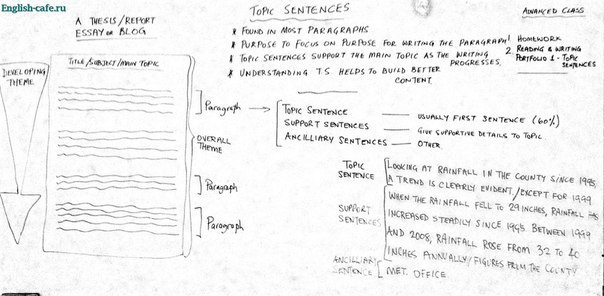 English-cafe.ru
A THESIS/REPORT
ESSAY OR BLOG
TOPIC SENTENCES
ADVANCED CLASS
* FOUND IN MOST PARAGRAPHS
* PURPOSE TO FOCUS ON PURPOSE FOR WRITING THE PARAGRAPH
* TOPIC SENTENCES SUPPORT THE MAIN TOPIC AS THE WRITING
PROGRESSES.
* UNDERSTANDING T.S HELPS TO BUILD BETTER
CONTENT.
1 HOMEWORK
2. READING & WRITING
PORTFOLIO 1 - TOPIC
SENTENCES
DEVELOPING
THEME
TITLE/SUBJECT/MAIN TOPIC
Paragraph
OVERALL
THEME
Paragraph
Paragraph
TOPIC SENTENCE — USUALLY FIRST SENTENCE (60%)
SUPPORT SENTENCES — GIVE SUPPORTIVE DETAILS TO TOPIC
ANCILLIARY SENTENCES — OTHER
TOPIC
SENTENCE
LOOKING AT RAINFALL IN THE COUNTY SINCE 1995
A TREND IS CLEARLY EVIDENT/EXCEPT FOR 1999
SUPPORT
SENTENCES
WHEN THE RAINFALL FELL TO 29 INCHES, RAINFALL HAS
INCREASED STEADILY SINCE 1995. BETWEEN 1999
AND 2008, RAINFALL ROSE FROM 32 TO 40
INCHES ANNUALLY/FIGURES FROM THE COUNTY
ANCILIARY
SENTENCE
MET. OFFICE